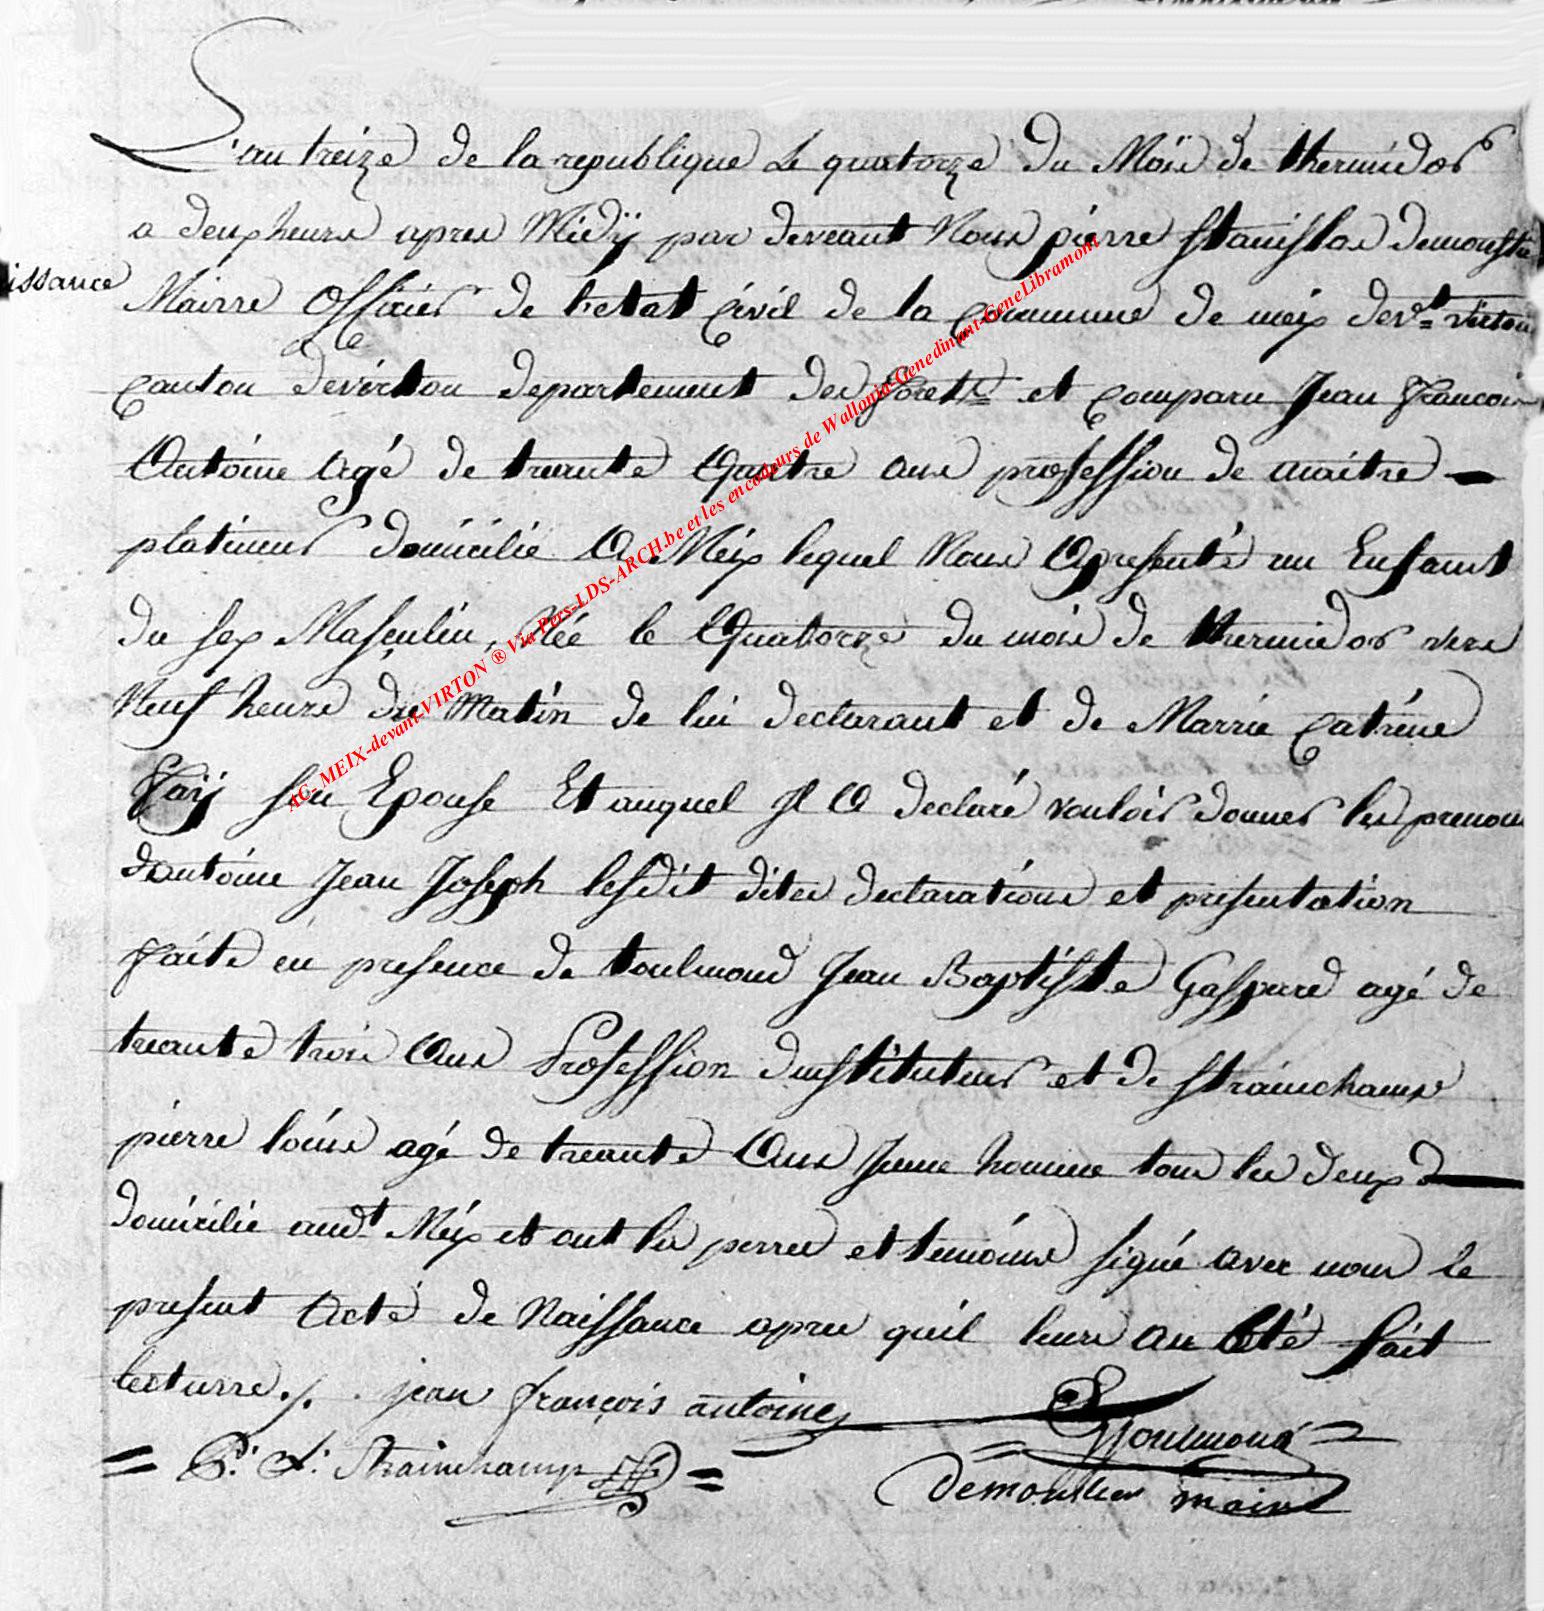 L'an treize de la republique Le quatorze du Mois de thermidor
a deux heures apres Midÿ par deveant Nous pierre stanislas demoustie
issance
Mairre Officier de l'etat Civil de la Commune de meix devt virton
Canton devirton departement des forets et Comparu Jean francois
Antoine agé de treante Quatre ans profession de maitre
platineur domicilié A Meix lequel Nous A presenté un Enfant
du sex Masculin, Née le Quatorze du mois de thermidor vers
Neuf heures du Matin de lui declarant et de Marrie Catréne
son Epouse Et auquel Jl A declaré vouloir donner les prenom
dantoine Jean Joseph lesdit dites declarations et presentation
faite en presence de toulmond Jean Baptiste Gaspard agé de
treante trois Ans Profession dinstituteur et de strainchamps
pierre louis agé de treante Ans Jeune homme tous les deux
domicilié audt Meix et ont les perres et temoins signé avec nous le
present Acte de Naissance apres quil leurs an Eté fait
lecturre ./. jean françois antoine
Toulmond
P. L. Strainchamps
demoustier maire
AC- MEIX-devant-VIRTON ® Via Pers-LDS-ARCH.be et les encodeurs de Wallonia-Genedinant-GeneLibramont